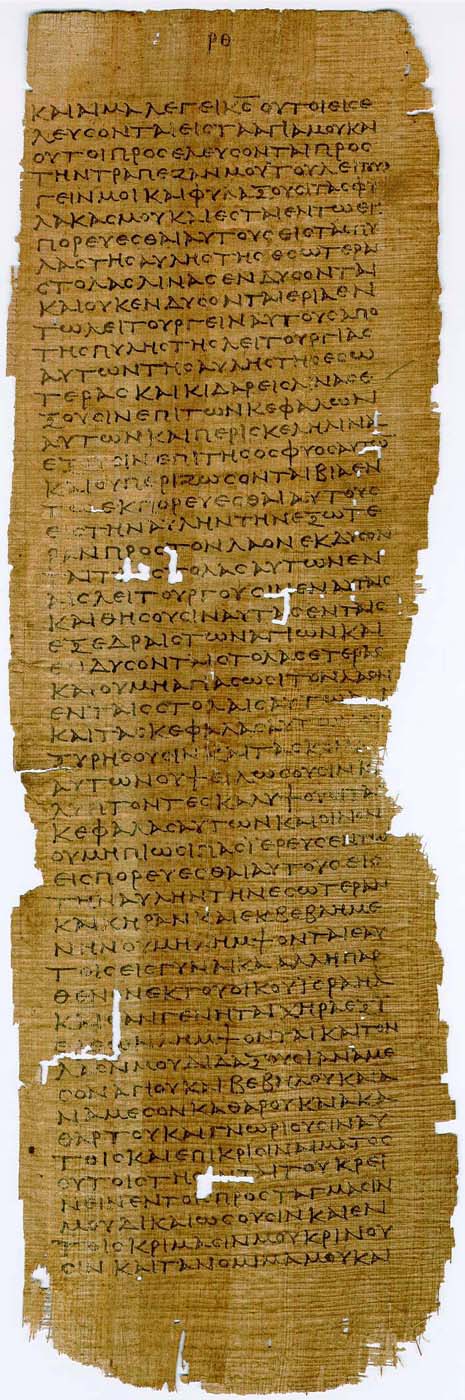 ΡΘ
ΚΑΙ ΑΙΜΑ ΛΕΓΕΙ ΚΣ ΟΥΤΟΙ ΕΙϹΕ
ΛΕΥϹΟΝΤΑΙ ΕΙϹ ΤΑ ΑΓΙΑ ΜΟΥ ΚΑΙ
ΟΥΤΟΙ ΠΡΟϹΕΛΕΥϹΟΝΤΑΙ ΠΡΟϹ
ΤΗΝ ΤΡΑΠΕΖΑΝ ΜΟΥ ΤΟΥ ΛΕΙΤΟΥΡ
ΓΕΙΝ ΜΟΙ ΚΑΙ ΦΥΛΑΞΟΥϹΙ ΤΑϹ ΦΥ
ΛΑΚΑϹ ΜΟΥ ΚΑΙ ΕϹΤΑΙ ΕΝ ΤΩ ΕΙϹ
ΠΟΡΕΥΕϹΘΑΙ ΑΥΤΟΥϹ ΕΙϹ ΤΑϹ ΠΥ
ΛΑϹ ΤΗϹ ΑΥΛΗϹ ΤΗϹ ΕϹΩΤΕΡΑϹ
ϹΤΟΛΑϹ ΛΙΝΑϹ ΕΝΔΥϹΟΝΤΑΙ
ΚΑΙ ΟΥΚ ΕΝΔΥϹΟΝΤΑΙ ΕΡΙΑ ΕΝ
ΤΩ ΛΕΙΤΟΥΡΓΕΙΝ ΑΥΤΟΥϹ ΑΠΟ
ΤΗϹ ΠΥΛΗϹ ΤΗϹ ΛΕΙΤΟΥΡΓΙΑϹ
ΑΥΤΩΝ ΤΗϹ ΑΥΛΗϹ ΤΗϹ ΕϹΩ
ΤΕΡΑϹ ΚΑΙ ΚΙΔΑΡΕΙϹ ΛΙΝΑϹ Ε
ΞΟΥϹΙΝ ΕΠΙ ΤΩΝ ΚΕΦΑΛΩΝ
ΑΥΤΩΝ ΚΑΙ ΠΕΡΙϹΚΕΛΗ ΛΙΝΑ
ΕΠΙ ΤΗϹ ΟϹΦΥΟϹ ΑΥΤΩ
ΚΑΙ ΟΥ ΠΕΡΙΖΩϹΟΝΤΑΙ ΒΙΑ ΕΝ
ΕΚΠΟΡΕΥΕϹΘΑΙ ΑΥΤΟΥϹ
ΤΗΝ ΑΥΛΗΝ ΤΗΝ ΕΞΩΤΕ
ΡΑΝ ΠΡΟϹ ΤΟΝ ΛΑΟΝ ΕΚΔΥϹΟΝ
ϹΤΟΛΑϹ ΑΥΤΩΝ ΕΝ
ΑΙϹ ΛΕΙΤΟΥΡΓΟΥϹΙΝ ΕΝ ΑΥΤΑΙϹ
ΚΑΙ ΘΗϹΟΥϹΙΝ ΑΥΤΑϹ ΕΝ ΤΑΙϹ
ΕΞΕΔΡΑΙϹ ΤΩΝ ΑΓΙΩΝ ΚΑΙ
ΔΥϹΟΝΤΑΙ ϹΤΟΛΑϹ ΕΤΕΡΑϹ
ΚΑΙ ΟΥ ΜΗ ΑΓΙΑϹΩϹΙ ΤΟΝ ΛΑΟΝ
ΕΝ ΤΑΙϹ ϹΤΟΛΑΙϹ ΑΥΤΩΝ
ΚΑΙ ΤΑϹ ΚΕΦΑΛΑϹ
ΞΥΡΗϹΟΥϹΙΝ ΚΑΙ ΤΑϹ
ΑΥΤΩΝ ΟΥ ΨΕΙΛΩϹΟΥϹΙΝ
ΚΑΛΥΨΟΥϹΙ ΤΑϹ
ΚΕΦΑΛΑϹ ΑΥΤΩΝ ΚΑΙ ΟΙΝΟΝ
ΟΥ ΜΗ ΠΙΩϹΙ ΠΑϹ ΙΕΡΕΥϹ ΕΝ ΤΩ
ΕΙϹΠΟΡΕΥΕϹΘΑΙ ΑΥΤΟΥϹ ΕΙϹ
ΤΗΝ ΑΥΛΗΝ ΤΗΝ ΕϹΩΤΕΡΑΝ
ΚΑΙ ΧΗΡΑΝ ΚΑΙ ΕΚΒΕΒΛΗΜΕ
ΝΗΝ ΟΥ ΜΗ ΛΗΜΨΟΝΤΑΙ ΕΑΥ
ΤΟΙϹ ΕΙϹ ΓΥΝΑΙΚΑ ΑΛΛΗ ΠΑΡ
ΘΕΝΟΝ ΕΚ ΤΟΥ ΟΙΚΟΥ ΙϹΡΑΗΛ
ΚΑΙ ΕΑΝ ΓΕΝΗΤΑΙ ΧΗΡΑ ΕΞ Ι
ΛΗΜΨΟΝΤΑΙ ΚΑΙ ΤΟΝ
ΛΑΟΝ ΜΟΥ ΔΙΔΑΞΟΥϹΙ ΑΝΑΜΕ
ϹΟΝ ΑΓΙΟΥ ΚΑΙ ΒΕΒΗΛΟΥ ΚΑΙ Α
ΝΑΜΕϹΟΝ ΚΑΘΑΡΟΥ ΚΑΙ ΑΚΑ
ΘΑΡΤΟΥ ΚΑΙ ΓΝΩΡΙΟΥϹΙΝ ΑΥ
ΤΟΙϹ ΚΑΙ ΕΠΙ ΚΡΙϹΙΝ ΑΙΜΑΤΟϹ
ΟΥΤΟΙ ϹΤΗϹΟΝΤΑΙ ΤΟΥ ΚΡΕΙ
ΝΕΙΝ ΕΝ ΤΟΙϹ ΠΡΟϹΤΑΓΜΑϹΙΝ
ΜΟΥ ΔΙΚΑΙΩϹΟΥϹΙΝ ΚΑΙ ΕΝ
ΤΟΙϹ ΚΡΙΜΑϹΙΝ ΜΟΥ ΚΡΙΝΟΥ
ϹΙΝ ΚΑΙ ΤΑ ΝΟΜΙΜΑ ΜΟΥ ΚΑΙ